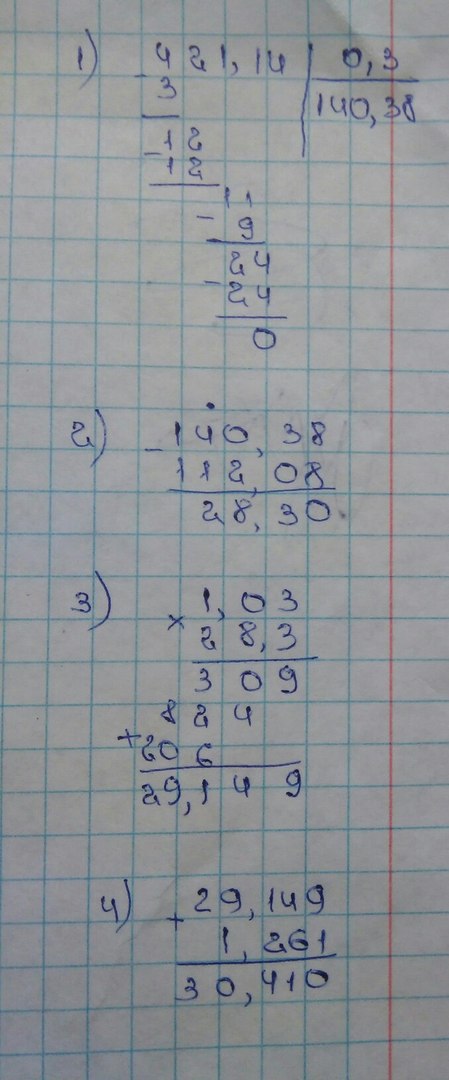 1) - 421,14 | 0,3
3 140,38
12
- 12
11
- 9
24
- 24
0
2) - 140,38
112,08
28,30
3) × 1,03
28,3
309
824
+ 206
29,149
4) + 29,149
1,261
30,410